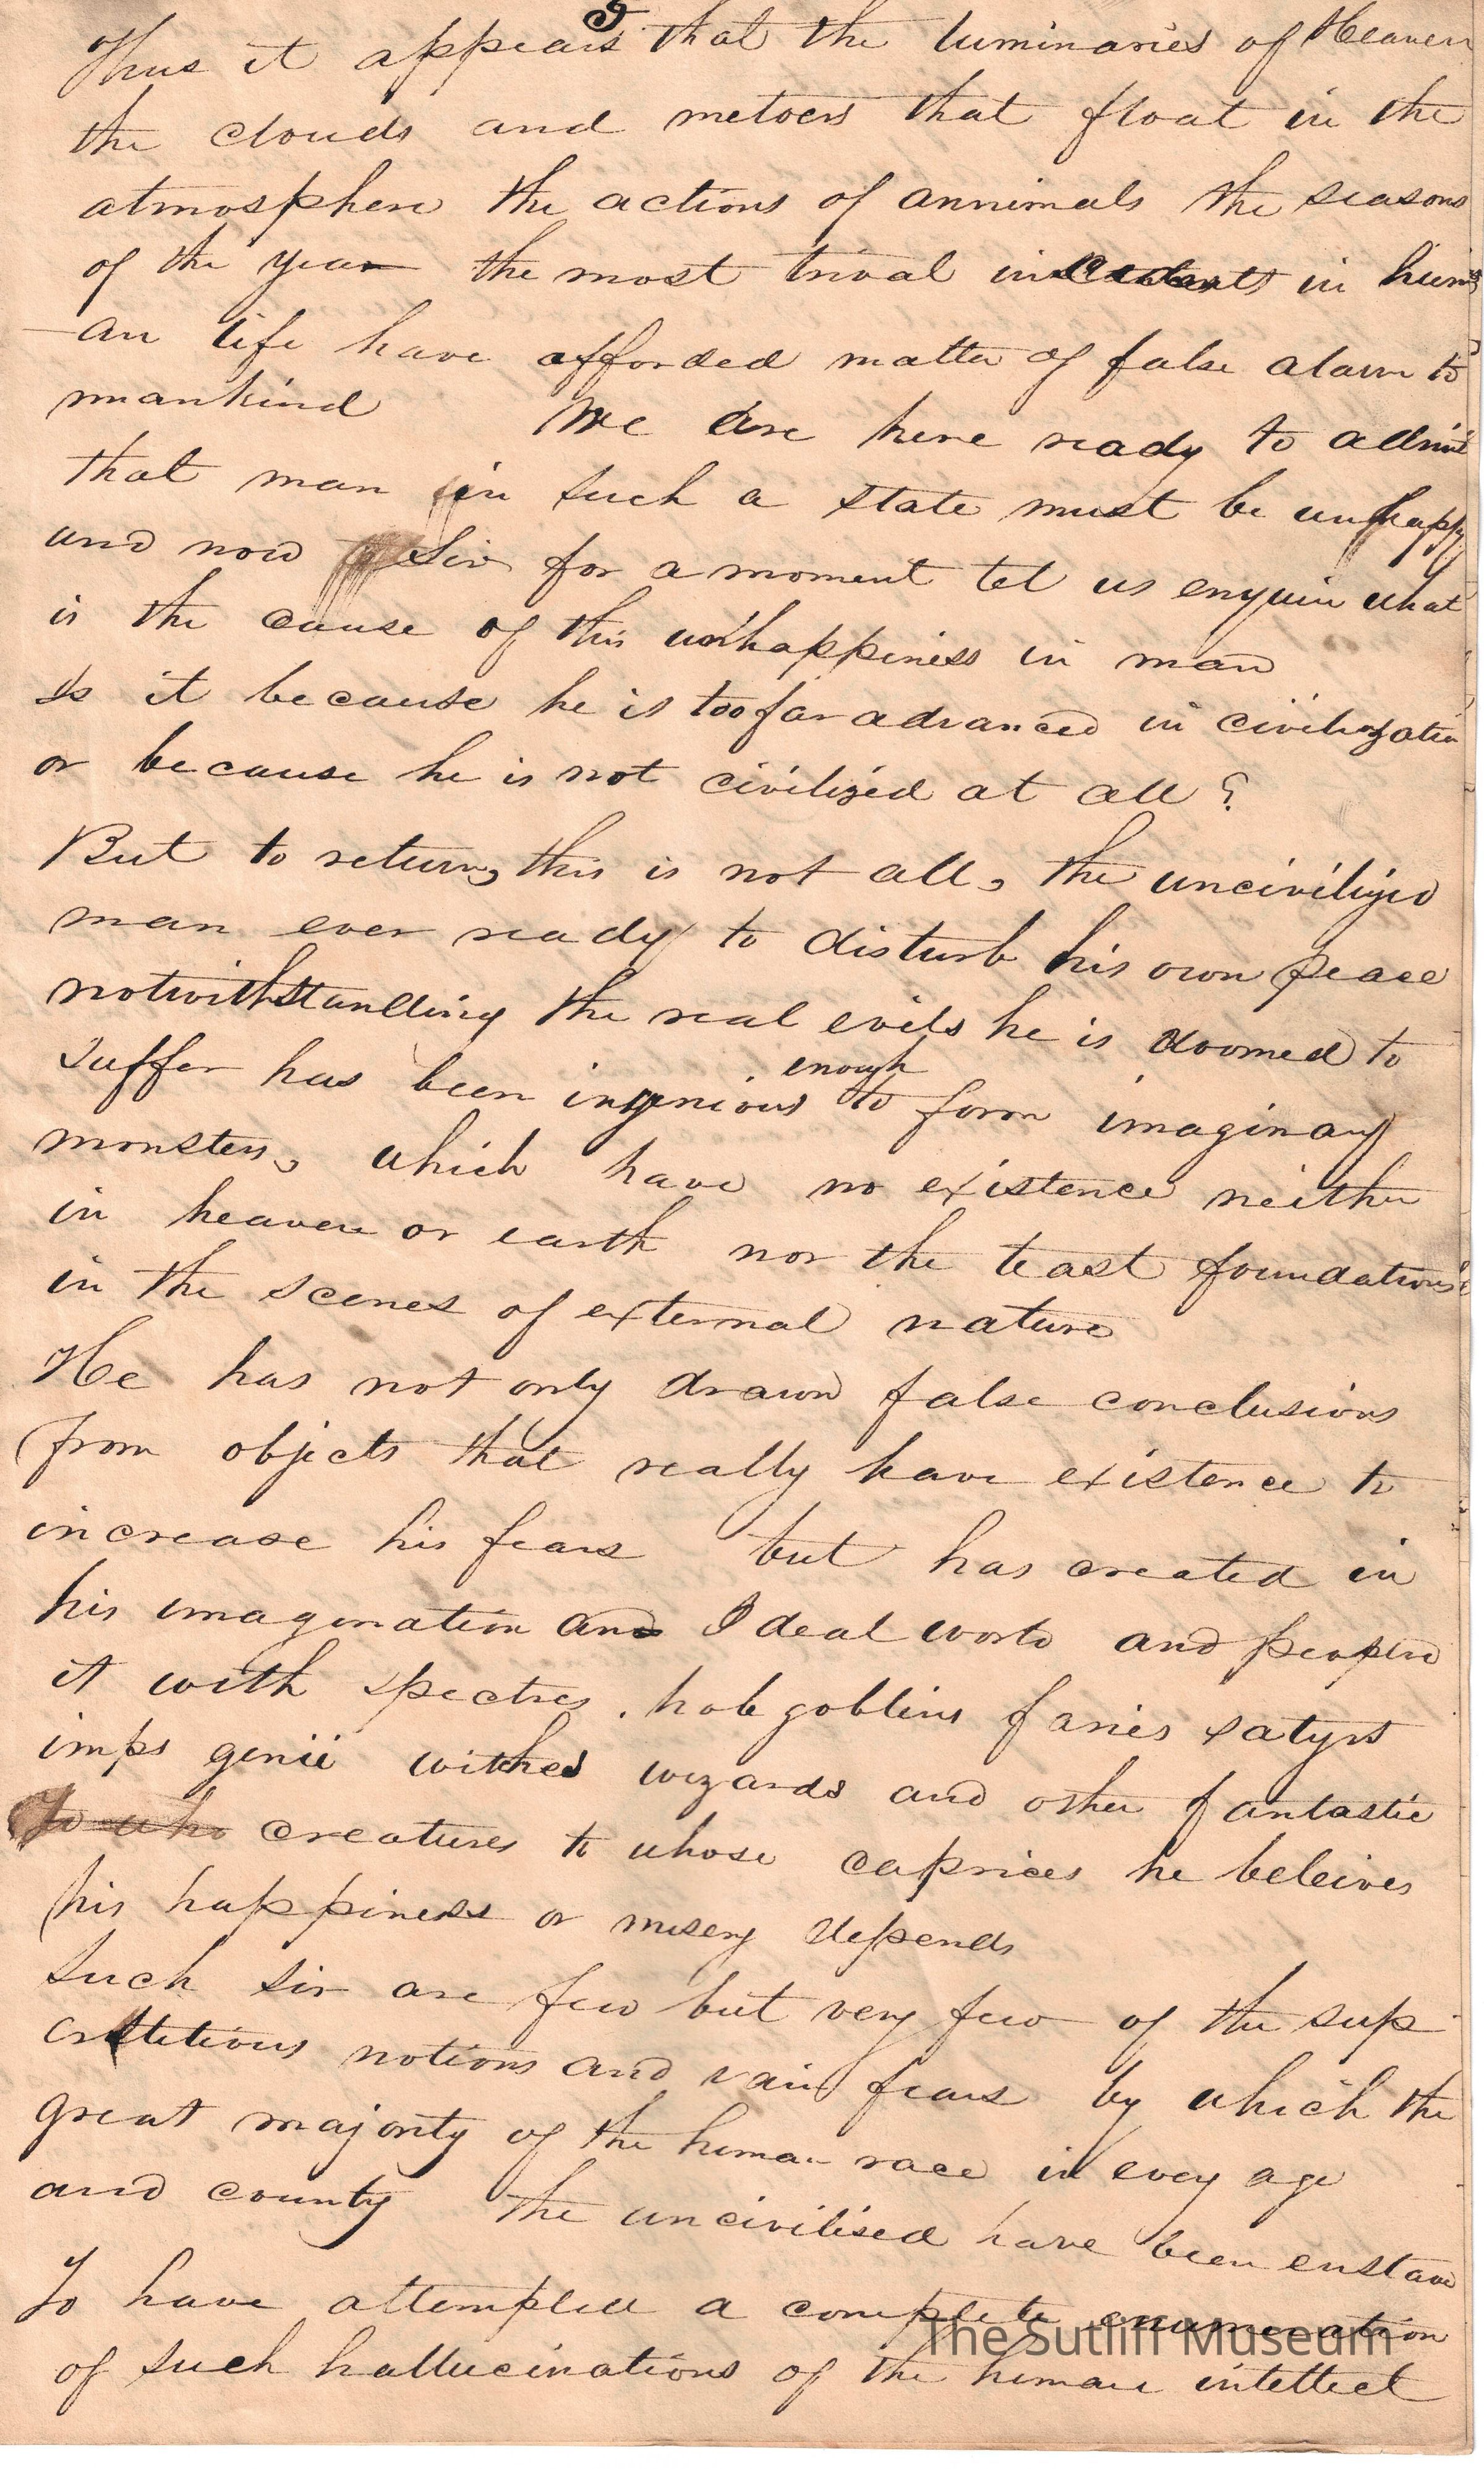 5
Thus it appears that the luminaries of Heaven
the clouds and metoers that float in the
atmosphere the actions of annimals the seasons
of the year the most trival incidents in hum
-an life have afforded matter of false alarm to
mankind We are here ready to admit
that man in such a state must be unhappy
and now Sir for a moment let us enquire what
is the cause of this unhappiness in man
Is it because he is too far advanced in civilization
or because he is not civilized at all?
But to return, this is not all, the uncivilized
man ever ready to disturb his own peace
notwithstanding the real evils he is doomed to
enough
suffer has been ingenious to form imaginary
monsters, which have no existence neither
in heaven or earth nor the least foundations
in the scenes of external nature
He has not only drawn false conclusions
from objects that really have existence to
increase his fears but has created in
his imagination and Ideal world and peopled
it with spectres, hobgoblins faries satyrs
imps genii witches wizards and other fantastic
To who creatures to whose caprices he beleives
his happiness or misery depends
Such sir are few but very few of the sup
erstitious notions and vain fears by which the
great majority of the human race in evey age
and county the uncivilised have been enslaved
To have attempted a complete enumeration
of such hallucinations of the human intellect
The Sutliff Museum